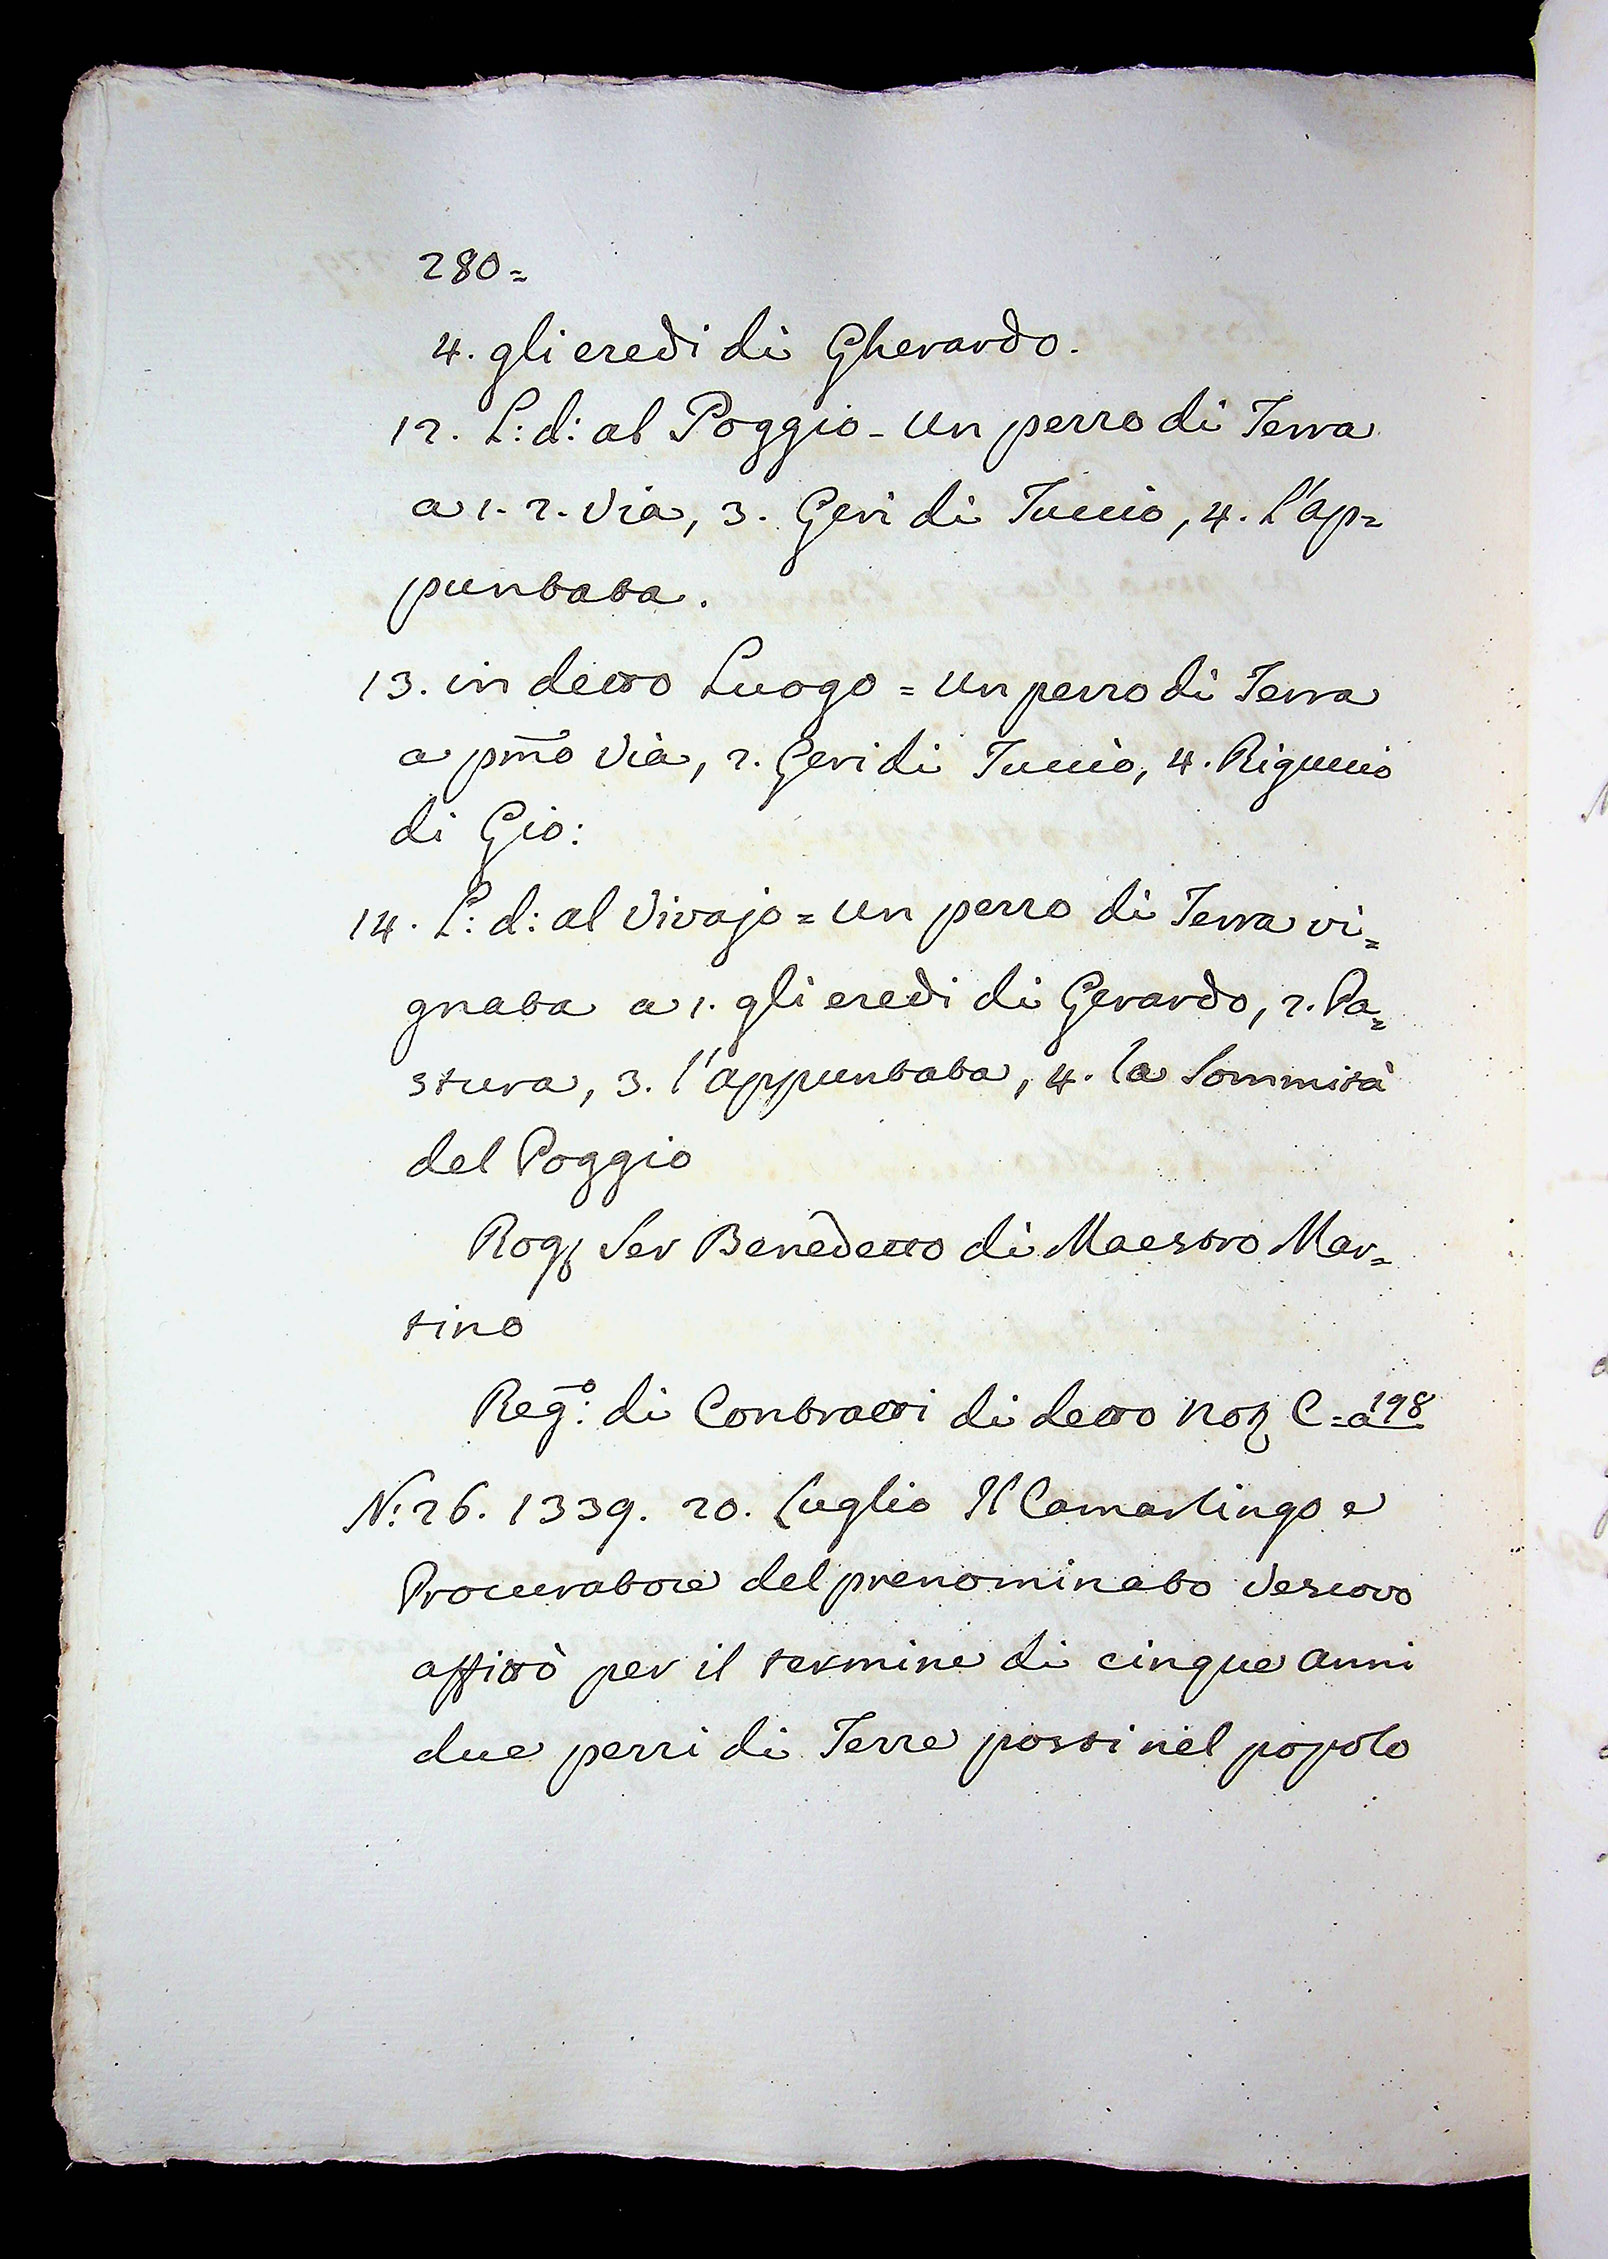 280=
4. gli eredi di Gherardo.
12. L: d: al Poggio - un pezzo di Terra
a 1. 2. via, 3. Geri di Tuccio, 4. l'ap=
puntata.
13. in detto Luogo = un pezzo di Terra
a pmo via, 2. Geri di Tuccio, 4. Riguccio
di Gio:
14. L: d: al Vivajo = un pezzo di Terra vi=
gnata a 1. gli eredi di Gerardo, 2. Pa=
stura, 3. l'appuntata, 4. la Sommità
del Poggio
Rog. Ser Benedetto di Maestro Mar=
tino
Reg:o di Contratti di detto Not. C=a 198
N: 26. 1339. 20. Luglio Il Camarlingo e
Procuratore del prenominato Vescovo
affittò per il termine di cinque anni
due pezzi di Terre posti nel popolo